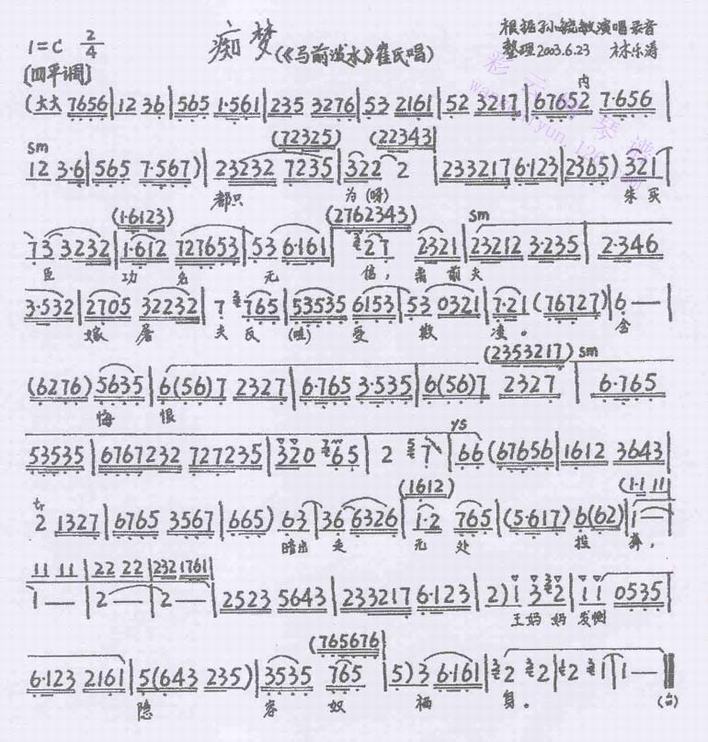 痴梦(《马前泼水》崔氏唱)
1=C 2/4
根据孙毓敏演唱录音
整理2003.6.23 林乐涛
[四平调]
(大大 7656|12 36|565 1·561|235 3276|53 2161|52 3217|67652 7·656|
内
sm
(72325) (22343)
12 3·6|565 7·567)|23232 7235|322 2|233217 6·123|2365) 321|
都只 为(呀) 朱买
(1·6123) (2762343) sm
73 3232|1·612 727653|53 6·161|27 2321|23212 3·235|2·346
臣 功名 无 信, 前夫
3·532|2705 32232|7 765|53535 6153|53 0321|7·21(76727)|6 —|
嫁 屠夫反(哇) 受 欺 凌。 含
(2353217) sm
(6276) 5635|6(56)7 2327|6·765 3·535|6(56)7 2327|6·765
悔 恨
ys
53535|6767232 727235|320 765|2 7|66(67656|1612 3643|
tr (1612) (1·1 11|
2 1327|6765 3567|665) 63|36 6326|1·2 765|(5·617) 6(62)|1
出走 无处 投 奔,
11 11|22 22|232 1761)
1 —|2 —|2 —|2523 5643|233217 6·123|2) 1 3 2|1 1 0535|
王妈妈发恻
(765676)
6·123 2161|5(643 235)|3535 765|5) 3 6·161|2 2|2 1|1 —‖
隐 容奴 栖 身。 (台)